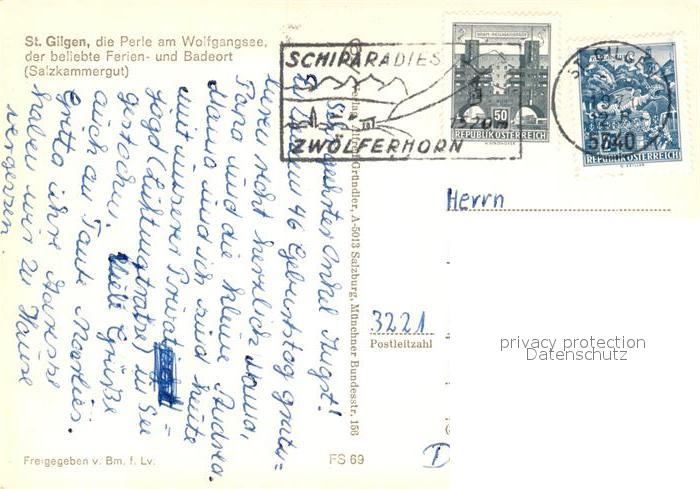 St. Gilgen, die Perle am Wolfgangsee,
der beliebte Ferien- und Badeort
(Salzkammergut)
SCHIPARADIES
ZWÖLFERHORN
50
REPUBLIK ÖSTERREICH
ST. GILGEN
5340
REPUBLIK ÖSTERREICH
Sehr geehrter Onkel August!
Zu 46 Geburtstag gratu=
lieren recht herzlich Mama,
Papa und die kleine Andrea.
Mama und ich sind heute
mit unserer Privat =
jagd (Luftmatratze) in See
gestochen. Viele Grüße
auch an Tante Marlies.
Gretta ihre Adresse
haben wir zu Hause
vergessen.
Verlag Alfred Gründler, A-5013 Salzburg, Münchner Bundesstr. 156
Herrn
3221
Postleitzahl
privacy protection
Datenschutz
Freigegeben v. Bm. f. Lv.
FS 69